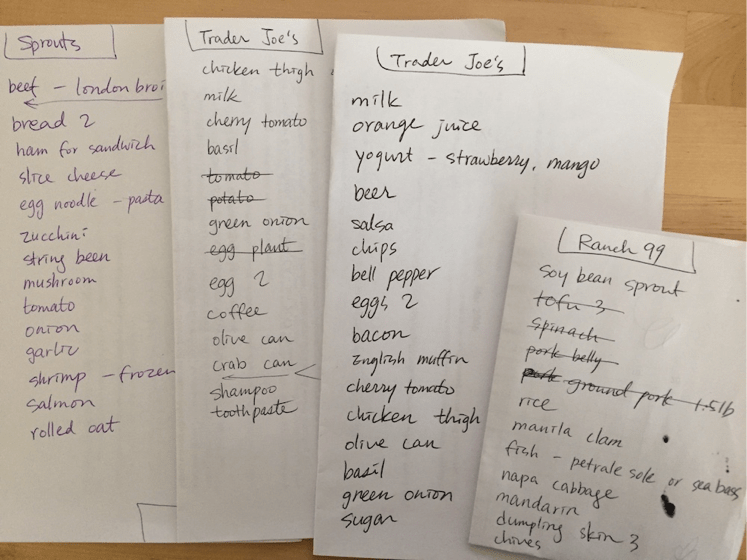 Sprouts
beef - london broi
bread 2
ham for sandwich
slice cheese
egg noodle - pasta
zucchini
string been
mushroom
tomato
onion
garlic
shrimp - frozen
salmon
rolled oat
Trader Joe's
chicken thigh
milk
cherry tomato
basil
tomato
potato
green onion
egg plant
egg 2
coffee
olive can
crab can
shampoo
toothpaste
Trader Joe's
milk
orange juice
yogurt - strawberry, mango
beer
salsa
chips
bell pepper
eggs 2
bacon
English muffin
cherry tomato
chicken thigh
olive can
basil
green onion
sugar
Ranch 99
soy bean sprout
tofu 3
spinach
pork belly
pork ground pork 1.5lb
rice
manila clam
fish - petrale sole or sea bass
napa cabbage
mandarin
dumpling skin 3
chives